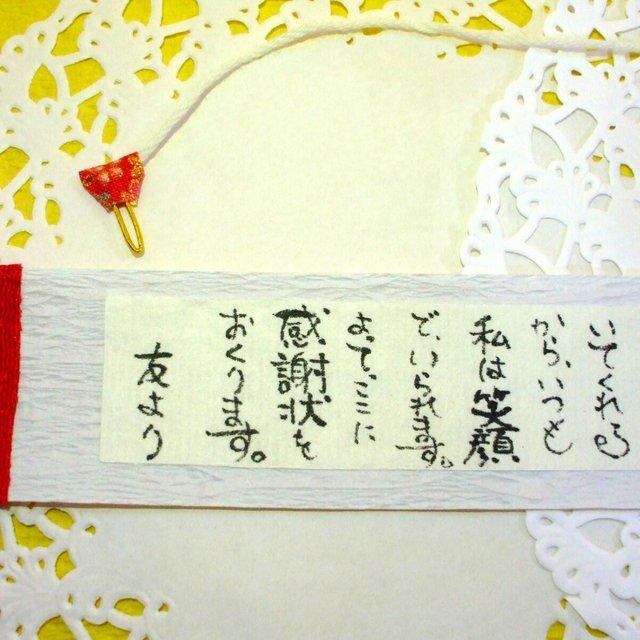 いてくれる
から、いつも
私は笑顔
でいられます。
よって、ここに
感謝状を
おくります。
友より